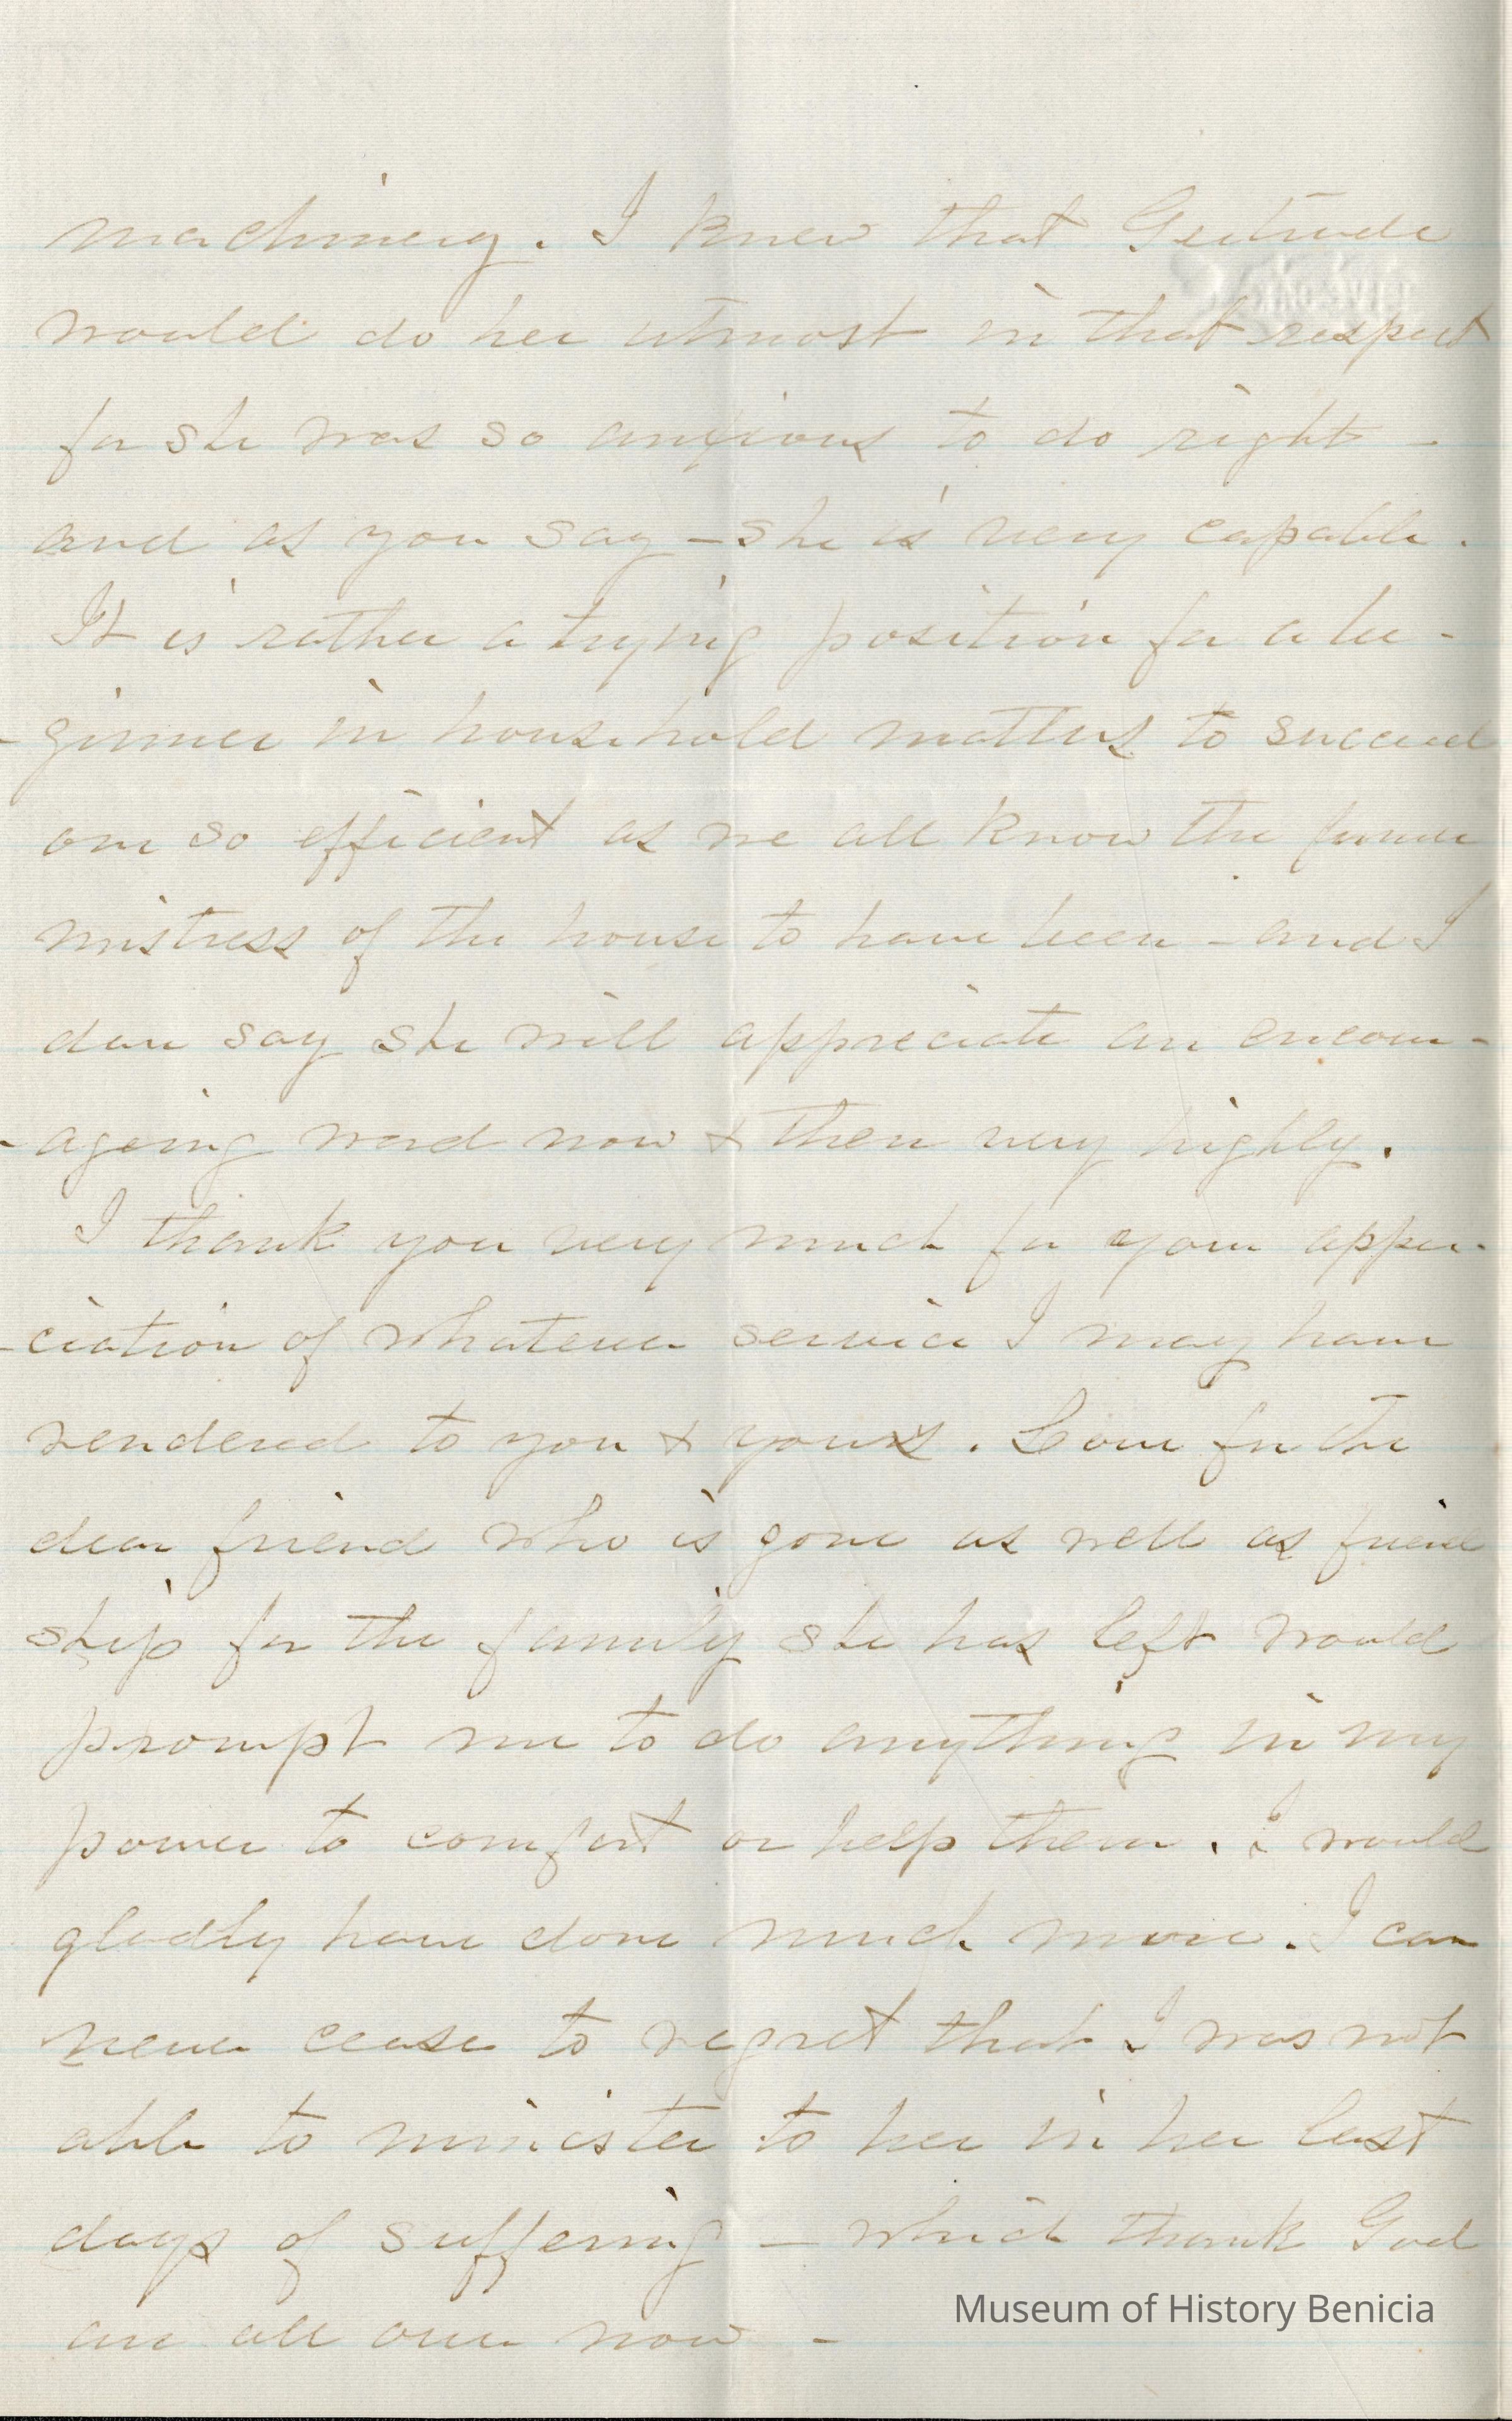 machinery. I knew that Gertrude
would do her utmost in that respect
for she was so anxious to do right –
and as you say – she is very capable.
It is rather a trying position for a be-
-ginner in household matters to succeed
one so efficient as we all know the former
mistress of the house to have been – and I
dare say she will appreciate an encour-
-ageing word now & then very highly.
I thank you very much for your appre-
-ciation of whatever service I may have
rendered to you & yours. Love for the
dear friend who is gone as well as friend
ship for the family she has left would
prompt me to do anything in my
power to comfort or help them. I would
gladly have done much more. I can
never cease to regret that I was not
able to minister to her in her last
days of suffering – which thank God
are all over now –
Museum of History Benicia